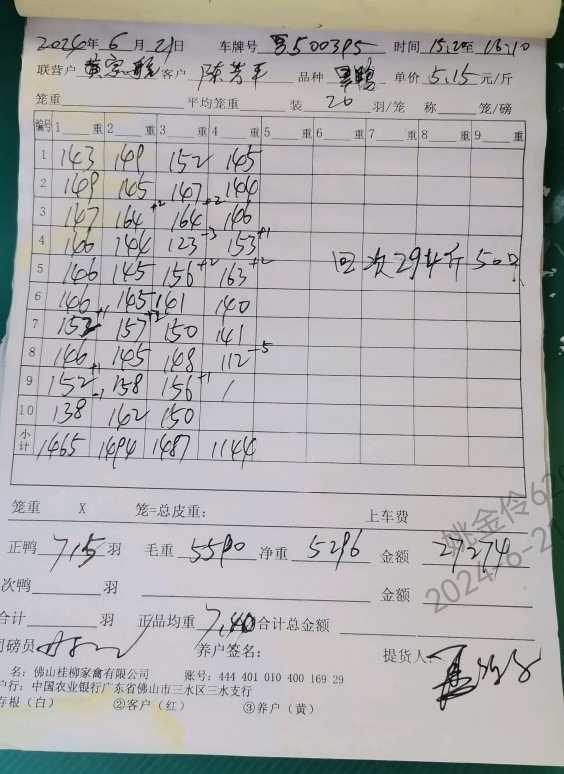 2024年6月21日 车牌号 粤500395 时间 15.20至16.10
联营户 客户 陈芳平 品种 单价 5.15 元/斤
笼重 平均笼重 装 20 羽/笼 称 笼/磅
编号 1 重 2 重 3 重 4 重 5 重 6 重 7 重 8 重 9 重
1 143 149 152 145
2 149 145 147 144
3 147 164+2 164+2 146
4 146 144 123-3 153+1
回次294斤50只
5 146 145 156+2 163+2
6 146 145 141 140
7 153+1 157+2 150 141
8 146 145 148 112-5
9 152+1 158 156+1 /
10 138-1 142 150
小计 1465 1494 1487 1144
笼重 X 笼=总皮重: 上车费
正鸭 715 羽 毛重 5590 净重 5296 金额 27274
次鸭 羽 金额
合计 羽 正品均重 7.40 合计总金额
司磅员 养户签名: 提货人:
名: 佛山桂柳家禽有限公司 账号: 444 401 010 400 169 29
户行: 中国农业银行广东省佛山市三水区三水支行
存根(白) ②客户(红) ③养户(黄)
姚金伶62
2024/6-2